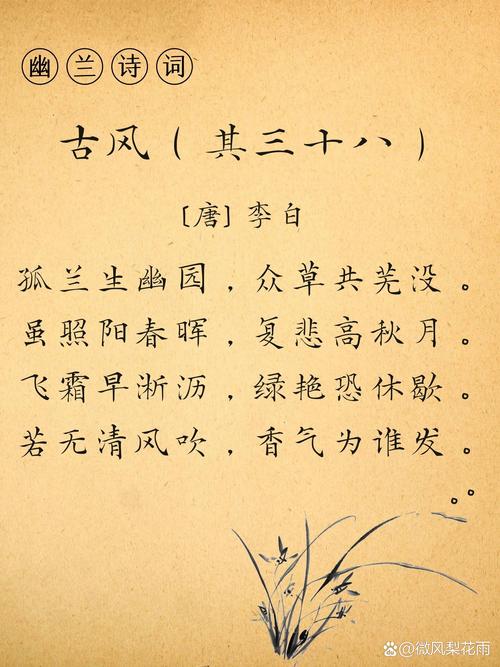 幽兰诗词
古风（其三十八）
［唐］李白
孤兰生幽园，众草共芜没。
虽照阳春晖，复悲高秋月。
飞霜早淅沥，绿艳恐休歇。
若无清风吹，香气为谁发。
。。
@微风梨花雨